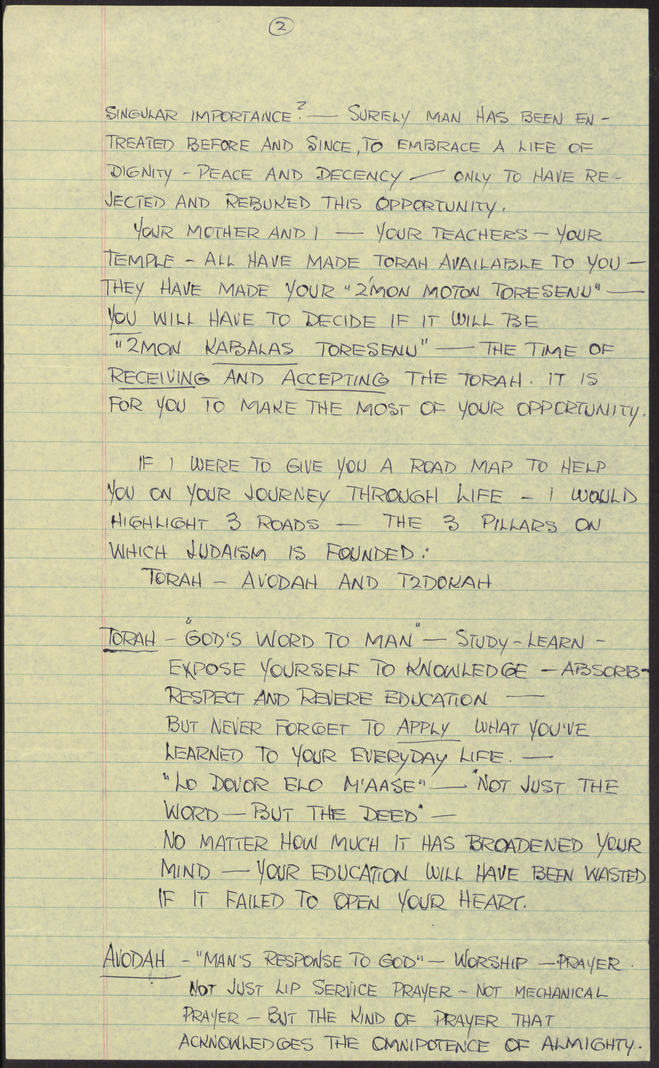 2
SINGULAR IMPORTANCE? — SURELY MAN HAS BEEN EN-
TREATED BEFORE AND SINCE, TO EMBRACE A LIFE OF
DIGNITY - PEACE AND DECENCY — ONLY TO HAVE RE-
JECTED AND REBUKED THIS OPPORTUNITY.
YOUR MOTHER AND I — YOUR TEACHERS - YOUR
TEMPLE - ALL HAVE MADE TORAH AVAILABLE TO YOU —
THEY HAVE MADE YOUR "Z'MON MOTON TORESENU" —
YOU WILL HAVE TO DECIDE IF IT WILL BE
"ZMON KABALAS TORESENU" — THE TIME OF
RECEIVING AND ACCEPTING THE TORAH. IT IS
FOR YOU TO MAKE THE MOST OF YOUR OPPORTUNITY.
IF I WERE TO GIVE YOU A ROAD MAP TO HELP
YOU ON YOUR JOURNEY THROUGH LIFE - I WOULD
HIGHLIGHT 3 ROADS — THE 3 PILLARS ON
WHICH JUDAISM IS FOUNDED:
TORAH - AVODAH AND TZDOKAH
TORAH - "GOD'S WORD TO MAN" — STUDY - LEARN -
EXPOSE YOURSELF TO KNOWLEDGE - ABSORB -
RESPECT AND REVERE EDUCATION —
BUT NEVER FORGET TO APPLY WHAT YOU'VE
LEARNED TO YOUR EVERYDAY LIFE. —
"LO DOVOR ELO M'AASE" — "NOT JUST THE
WORD — BUT THE DEED" —
NO MATTER HOW MUCH IT HAS BROADENED YOUR
MIND — YOUR EDUCATION WILL HAVE BEEN WASTED
IF IT FAILED TO OPEN YOUR HEART.
AVODAH - "MAN'S RESPONSE TO GOD" — WORSHIP — PRAYER.
NOT JUST LIP SERVICE PRAYER - NOT MECHANICAL
PRAYER - BUT THE KIND OF PRAYER THAT
ACKNOWLEDGES THE OMNIPOTENCE OF ALMIGHTY.